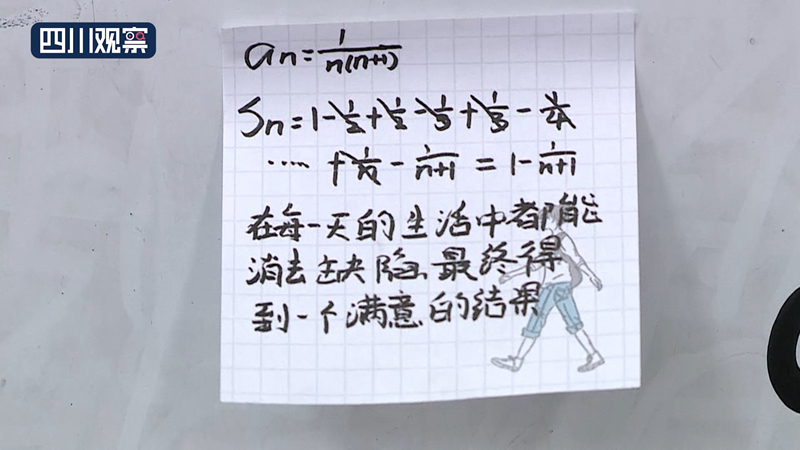 四川观察
an=1/n(n+1)
Sn=1-1/2+1/2-1/3+1/3-1/4
····· +1/n-1/n+1=1-1/n+1
在每一天的生活中都能
消去缺陷最终得
到一个满意的结果